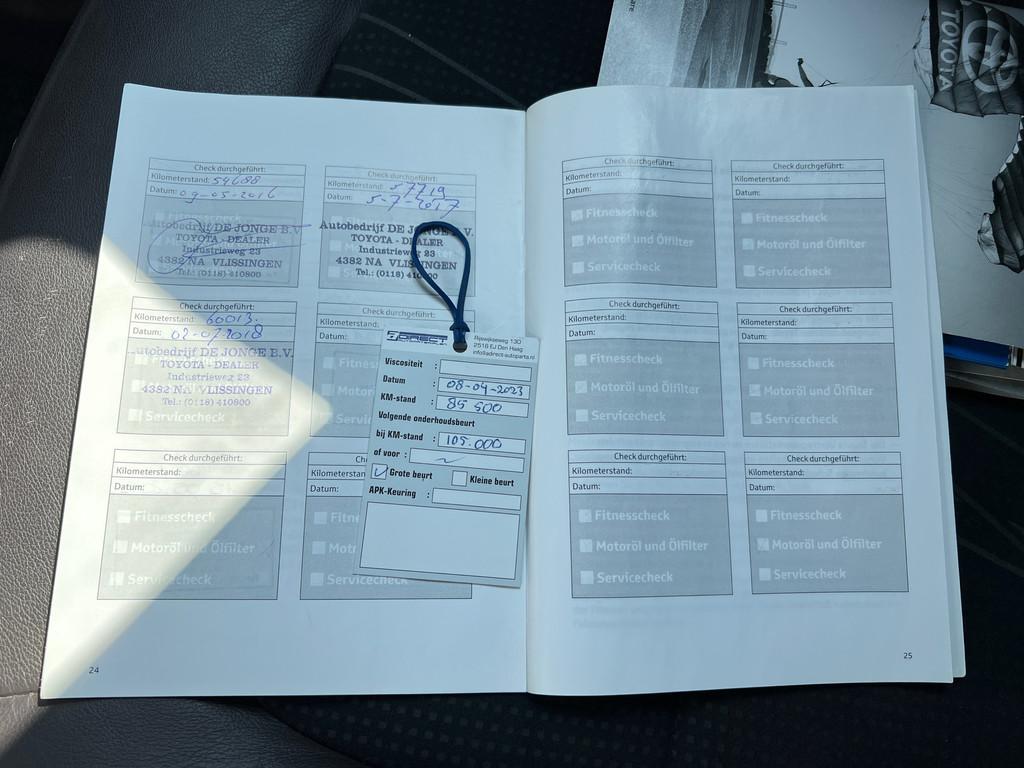 Check durchgeführt:
Kilometerstand: 54688
Datum: 09-05-2016
Fitnesscheck
Autobedrijf DE JONGE B.V.
TOYOTA - DEALER
Industrieweg 23
4382 NA VLISSINGEN
Tel.: (0118) 410800
Check durchgeführt:
Kilometerstand: 57719
Datum: 5-7-2017
Autobedrijf DE JONGE B.V.
TOYOTA - DEALER
Industrieweg 23
4382 NA VLISSINGEN
Tel.: (0118) 410800
Check durchgeführt:
Kilometerstand: 60013.
Datum: 02-07-2018
Autobedrijf DE JONGE B.V.
TOYOTA - DEALER
Industrieweg 23
4382 NA VLISSINGEN
Tel.: (0118) 410800
Servicecheck
Check durchgeführt:
Kilometerstand:
Datum:
Check durchgeführt:
Kilometerstand:
Datum:
Fitnesscheck
Motoröl und Ölfilter
Servicecheck
Kilometerstand:
Datum:
Servicecheck
24
DIRECT
Rijswijkseweg 130
2516 EJ Den Haag
info@adirect-autoparts.nl
Viscositeit :
Datum : 08-04-2023
KM-stand : 85 500
Volgende onderhoudsbeurt
bij KM-stand : 105.000
of voor : ~
Grote beurt
Kleine beurt
APK-Keuring :
Check durchgeführt:
Kilometerstand:
Datum:
Fitnesscheck
Motoröl und Ölfilter
Servicecheck
Check durchgeführt:
Kilometerstand:
Datum:
Fitnesscheck
Motoröl und Ölfilter
Servicecheck
Check durchgeführt:
Kilometerstand:
Datum:
Fitnesscheck
Motoröl und Ölfilter
Servicecheck
Check durchgeführt:
Kilometerstand:
Datum:
Fitnesscheck
Motoröl und Ölfilter
Servicecheck
Check durchgeführt:
Kilometerstand:
Datum:
Fitnesscheck
Motoröl und Ölfilter
Servicecheck
Check durchgeführt:
Kilometerstand:
Datum:
Fitnesscheck
Motoröl und Ölfilter
Servicecheck
25
TOYOTA